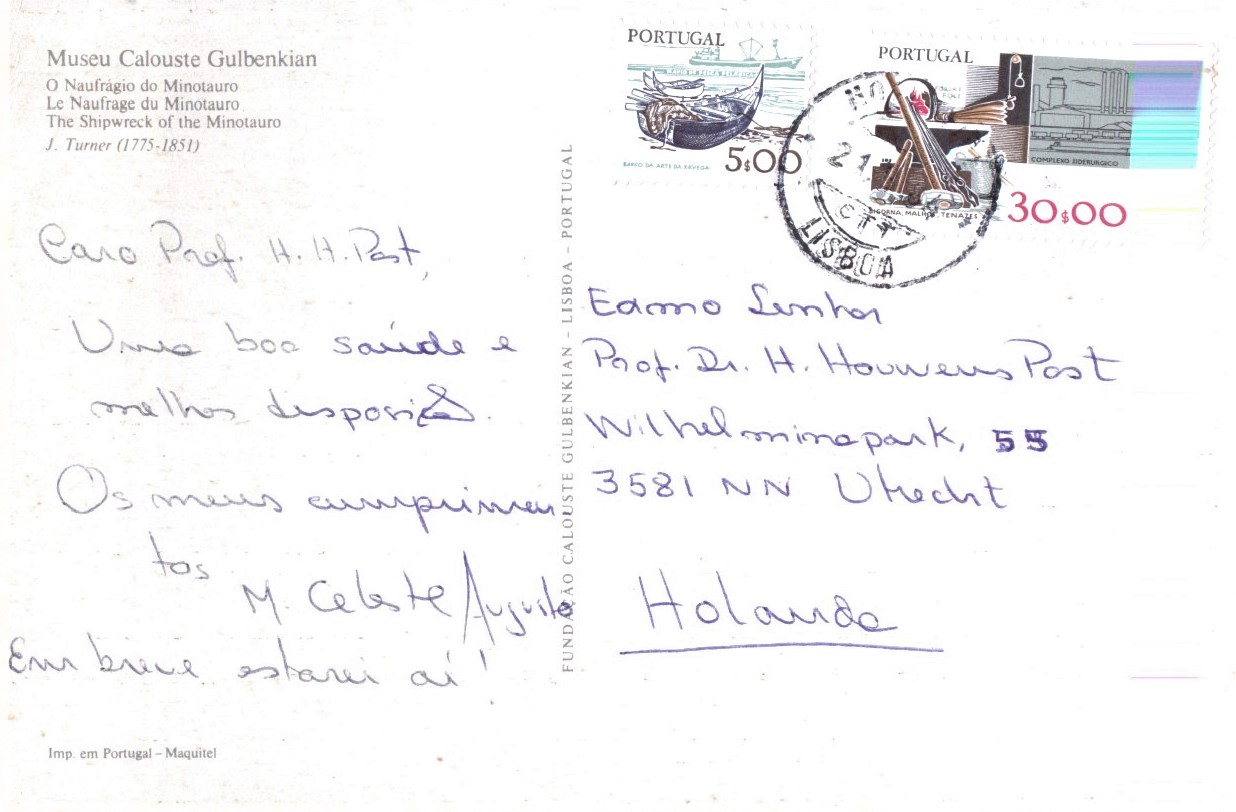 Museu Calouste Gulbenkian
O Naufrágio do Minotauro
Le Naufrage du Minotauro
The Shipwreck of the Minotauro
J. Turner (1775-1851)
Caro Prof. H. H. Post,
Uma boa saúde e
melhor disposição.
Os meus cumprimen-
tos
M. Celeste Augusto
Em breve estarei aí!
Imp. em Portugal – Maquitel
FUNDAÇÃO CALOUSTE GULBENKIAN – LISBOA – PORTUGAL
PORTUGAL
NAVIO DE PESCA PELÁGICA
BARCO DA ARTE DA XÁVEGA
5$00
PORTUGAL
COMPLEXO SIDERURGICO
BIGORNA, MALHO, TENAZES
30$00
21
CTT
LISBOA
Exmo Senhor
Prof. Dr. H. Houwens Post
Wilhelminapark, 55
3581 NN Utrecht
Holanda